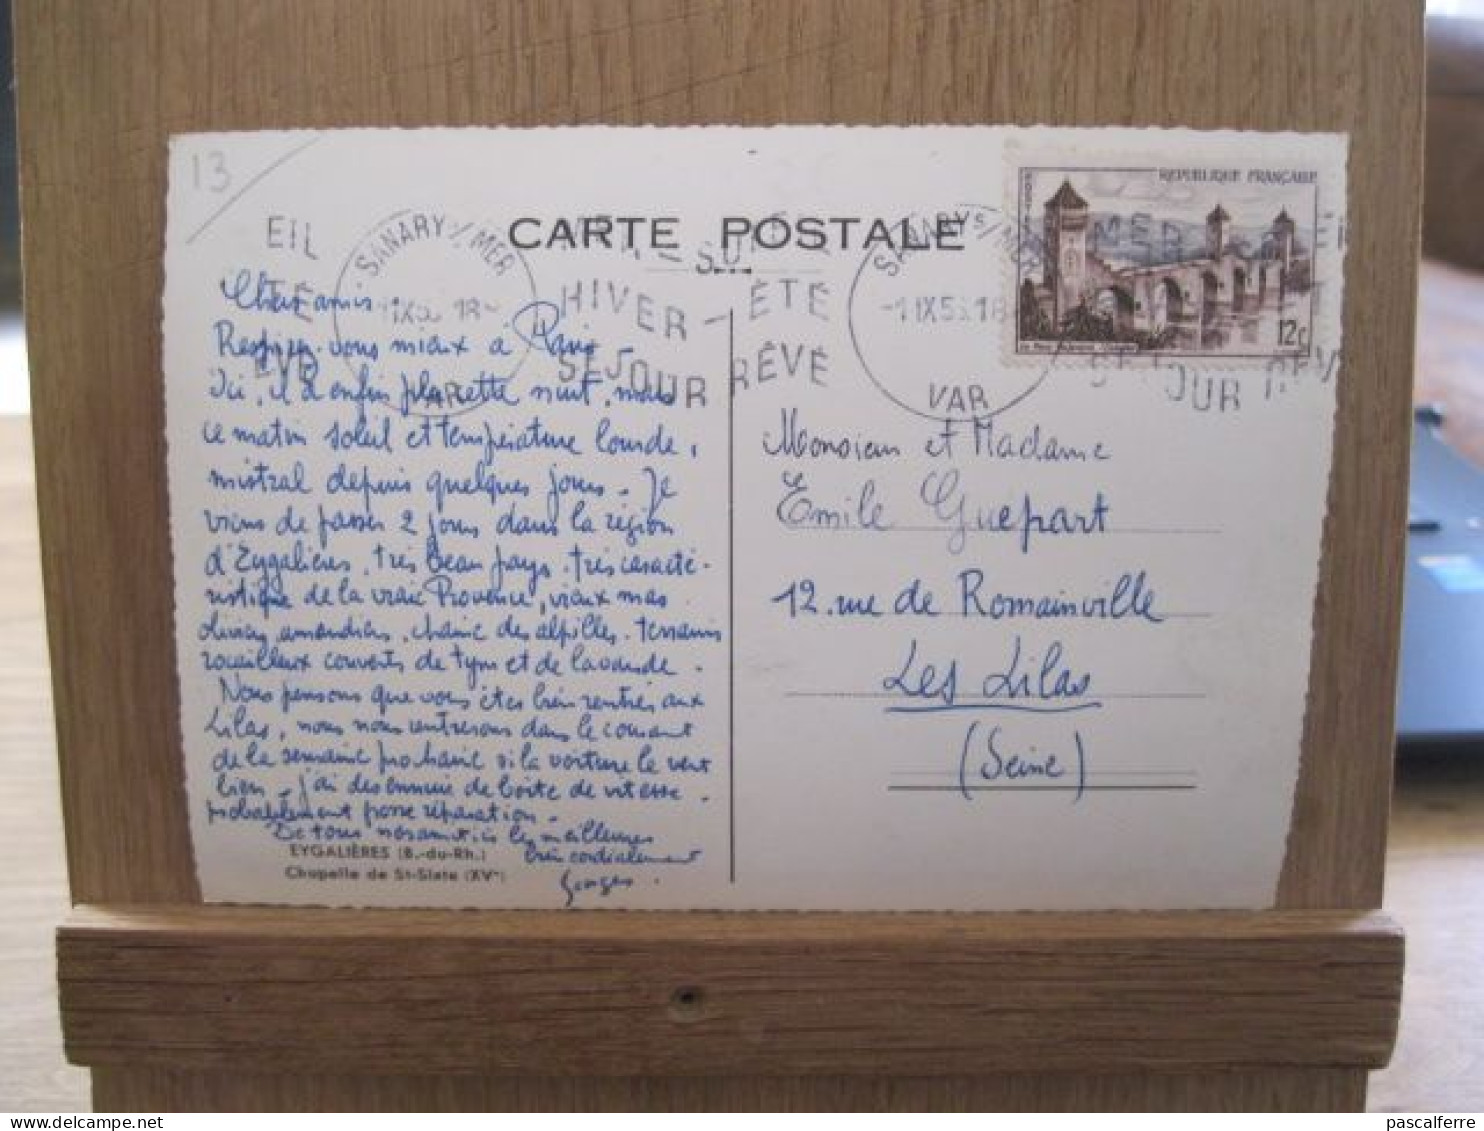 13
CARTE POSTALE
REPUBLIQUE FRANÇAISE
12f
SANARY s/MER
VAR
HIVER – ÉTÉ
SÉJOUR RÊVÉ
SANARY s/MER
VAR
Chers amis.
Respirez-vous mieux à Paris –
Ici, il a enfin plu cette nuit, mais
ce matin soleil et température lourde,
mistral depuis quelques jours – Je
viens de passer 2 jours dans la région
d'Eygalières, très beau pays. très caracté-
ristique de la vraie Provence, vieux mas
amandiers, chaine des alpilles. terrains
rocailleux couverts de tym et de lavande.
Nous pensons que vous êtes bien rentrés aux
Lilas, nous nous rentrerons dans le courant
de la semaine prochaine si la voiture le veut
bien – j'ai des ennuie de boîte de vitesse.
probablement grosse réparation –
De tous nos amitiés les meilleures
bien cordialement
Georges.
EYGALIÈRES (B.-du-Rh.)
Chapelle de St-Sixte (XVe)
Monsieur et Madame
Emile Guepart
12. rue de Romainville
Les Lilas
(Seine)
pascalferre